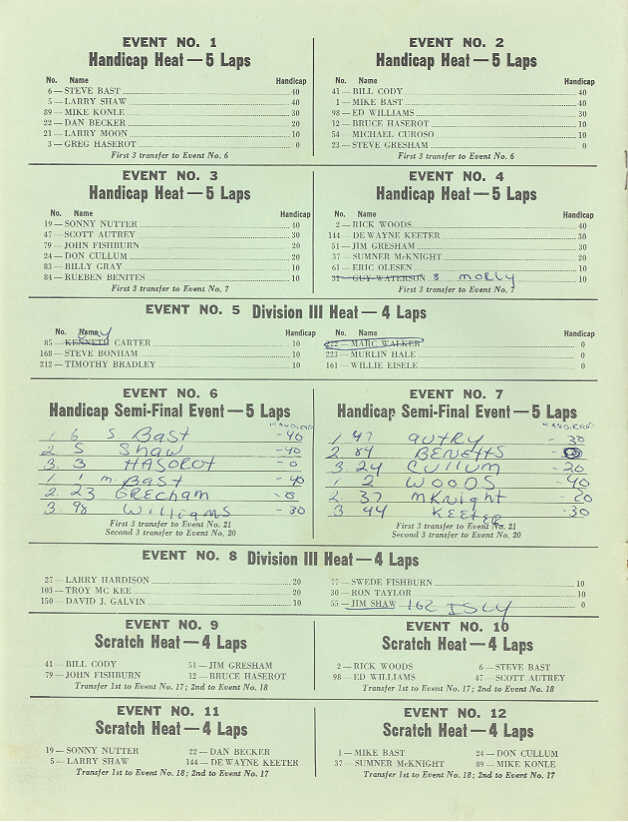 EVENT NO. 1
Handicap Heat — 5 Laps
No. Name Handicap
6 — STEVE BAST 40
5 — LARRY SHAW 40
89 — MIKE KONLE 30
22 — DAN BECKER 20
21 — LARRY MOON 10
3 — GREG HASEROT 0
First 3 transfer to Event No. 6
EVENT NO. 2
Handicap Heat — 5 Laps
No. Name Handicap
41 — BILL CODY 40
1 — MIKE BAST 40
98 — ED WILLIAMS 30
12 — BRUCE HASEROT 10
54 — MICHAEL CUROSO 10
23 — STEVE GRESHAM 0
First 3 transfer to Event No. 6
EVENT NO. 3
Handicap Heat — 5 Laps
No. Name Handicap
19 — SONNY NUTTER 40
47 — SCOTT AUTREY 30
79 — JOHN FISHBURN 20
24 — DON CULLUM 20
83 — BILLY GRAY 10
84 — RUEBEN BENITES 10
First 3 transfer to Event No. 7
EVENT NO. 4
Handicap Heat — 5 Laps
No. Name Handicap
2 — RICK WOODS 40
144 — DE WAYNE KEETER 30
51 — JIM GRESHAM 30
37 — SUMNER McKNIGHT 20
61 — ERIC OLESEN 10
31 — GUY WATERSON 8 MORLY 10
First 3 transfer to Event No. 7
EVENT NO. 5 Division III Heat — 4 Laps
No. Name Handicap
85 — KENNETH CARTER 10
168 — STEVE BONHAM 10
212 — TIMOTHY BRADLEY 10
No. Name Handicap
222 — MARC WALKER 0
223 — MURLIN HALE 0
161 — WILLIE EISELE 0
EVENT NO. 6
Handicap Semi-Final Event — 5 Laps
HANDICAP
1 6 S BAST -40
2. 5 SHAW -40
3. 3 HASOROT -0
1 1 m BAST -40
2. 23 GRECHAM -0
3. 98 Williams -30
First 3 transfer to Event No. 21
Second 3 transfer to Event No. 20
EVENT NO. 7
Handicap Semi-Final Event — 5 Laps
HANDICAP
1 47 AUTRY - 30
2 84 BENEITS -
3 24 CULLUM - 20
1 2 WOODS - 40
2. 37 mKNight - 20
3 44 KEETER - 30
First 3 transfer to Event No. 21
Second 3 transfer to Event No. 20
EVENT NO. 8 Division III Heat — 4 Laps
27 — LARRY HARDISON 20
103 — TROY MC KEE 20
150 — DAVID J. GALVIN 10
77 — SWEDE FISHBURN 10
30 — RON TAYLOR 10
55 — JIM SHAW - 162 ISLY 0
EVENT NO. 9
Scratch Heat — 4 Laps
41 — BILL CODY 51 — JIM GRESHAM
79 — JOHN FISHBURN 12 — BRUCE HASEROT
Transfer 1st to Event No. 17; 2nd to Event No. 18
EVENT NO. 10
Scratch Heat — 4 Laps
2 — RICK WOODS 6 — STEVE BAST
98 — ED WILLIAMS 47 — SCOTT AUTREY
Transfer 1st to Event No. 17; 2nd to Event No. 18
EVENT NO. 11
Scratch Heat — 4 Laps
19 — SONNY NUTTER 22 — DAN BECKER
5 — LARRY SHAW 144 — DE WAYNE KEETER
Transfer 1st to Event No. 18; 2nd to Event No. 17
EVENT NO. 12
Scratch Heat — 4 Laps
1 — MIKE BAST 24 — DON CULLUM
37 — SUMNER McKNIGHT 89 — MIKE KONLE
Transfer 1st to Event No. 18; 2nd to Event No. 17